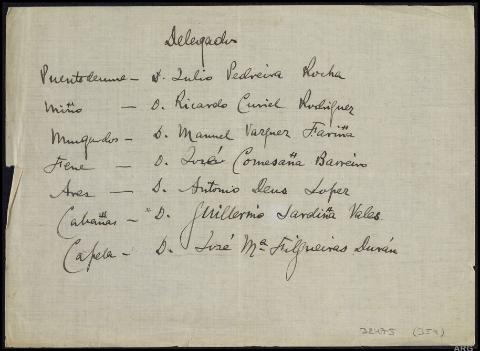 Delegados
Puentedeume - D. Julio Pedreira Rocha
Miño - D. Ricardo Curiel Rodriguez
Mugardos - D. Manuel Vazquez Fariña
Fene - D. José Comesaña Barreiro
Ares - D. Antonio Deus Lopez
Cabañas - D. Guillermo Sardiña Vales
Capela - D. José Mª Filgueiras Durán
32475 (354)
ARG